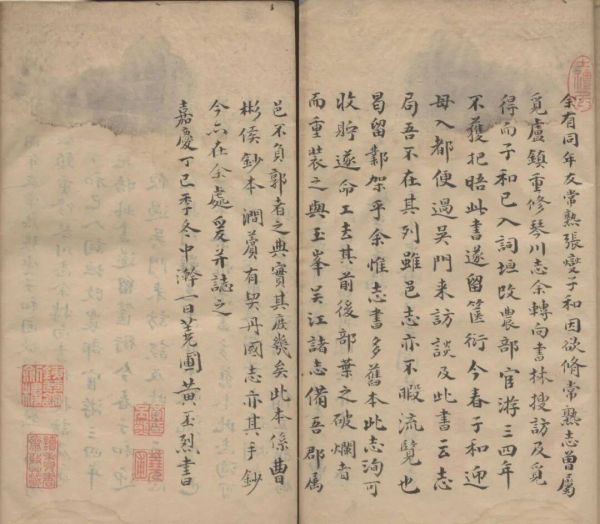 余有同年友常熟張燮子和因欲脩常熟志曾屬
覓盧鎮重修琴川志余轉向書林搜訪及覓
得而子和已入詞垣改農部官游三四年
不獲把晤此書遂留篋衍今春子和迎
母入都便過吳門来訪談及此書云志
局吾不在其列雖邑志亦不暇流覽也
曷留鄴架乎余惟志書多舊本此志洵可
收貯遂命工去其前後部葉之破爛者
而重裝之與玉峯吴江諸志備吾郡属
邑不負郭者之典實其庶幾矣此本係曹
彬侯鈔本澗薲有契丹國志亦其手鈔
今亦在余處爰并誌之
嘉慶丁巳季冬中澣一日蕘圃黃丕烈書